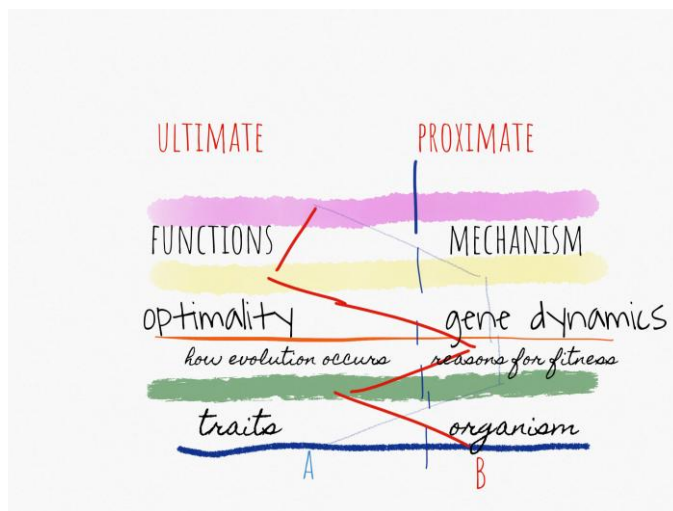 ULTIMATE PROXIMATE
FUNCTIONS MECHANISM
optimality gene dynamics
how evolution occurs reasons for fitness
traits organism
A B